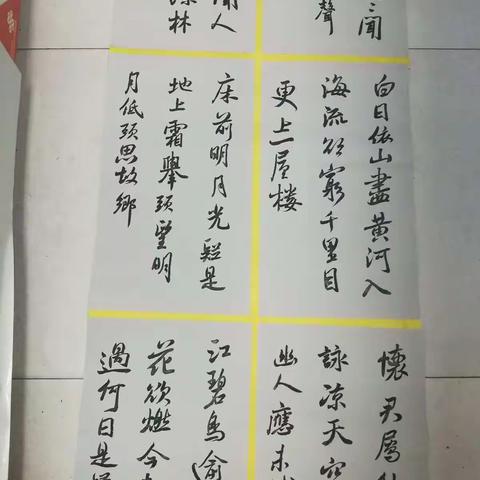 聞
聲
聞人
深林
白日依山盡黄河入
海流欲窮千里目
更上一層楼
床前明月光疑是
地上霜舉頭望明
月低頭思故鄉
懷君屬
詠涼天空
幽人應未
江碧鳥逾
花欲燃今
過何日是